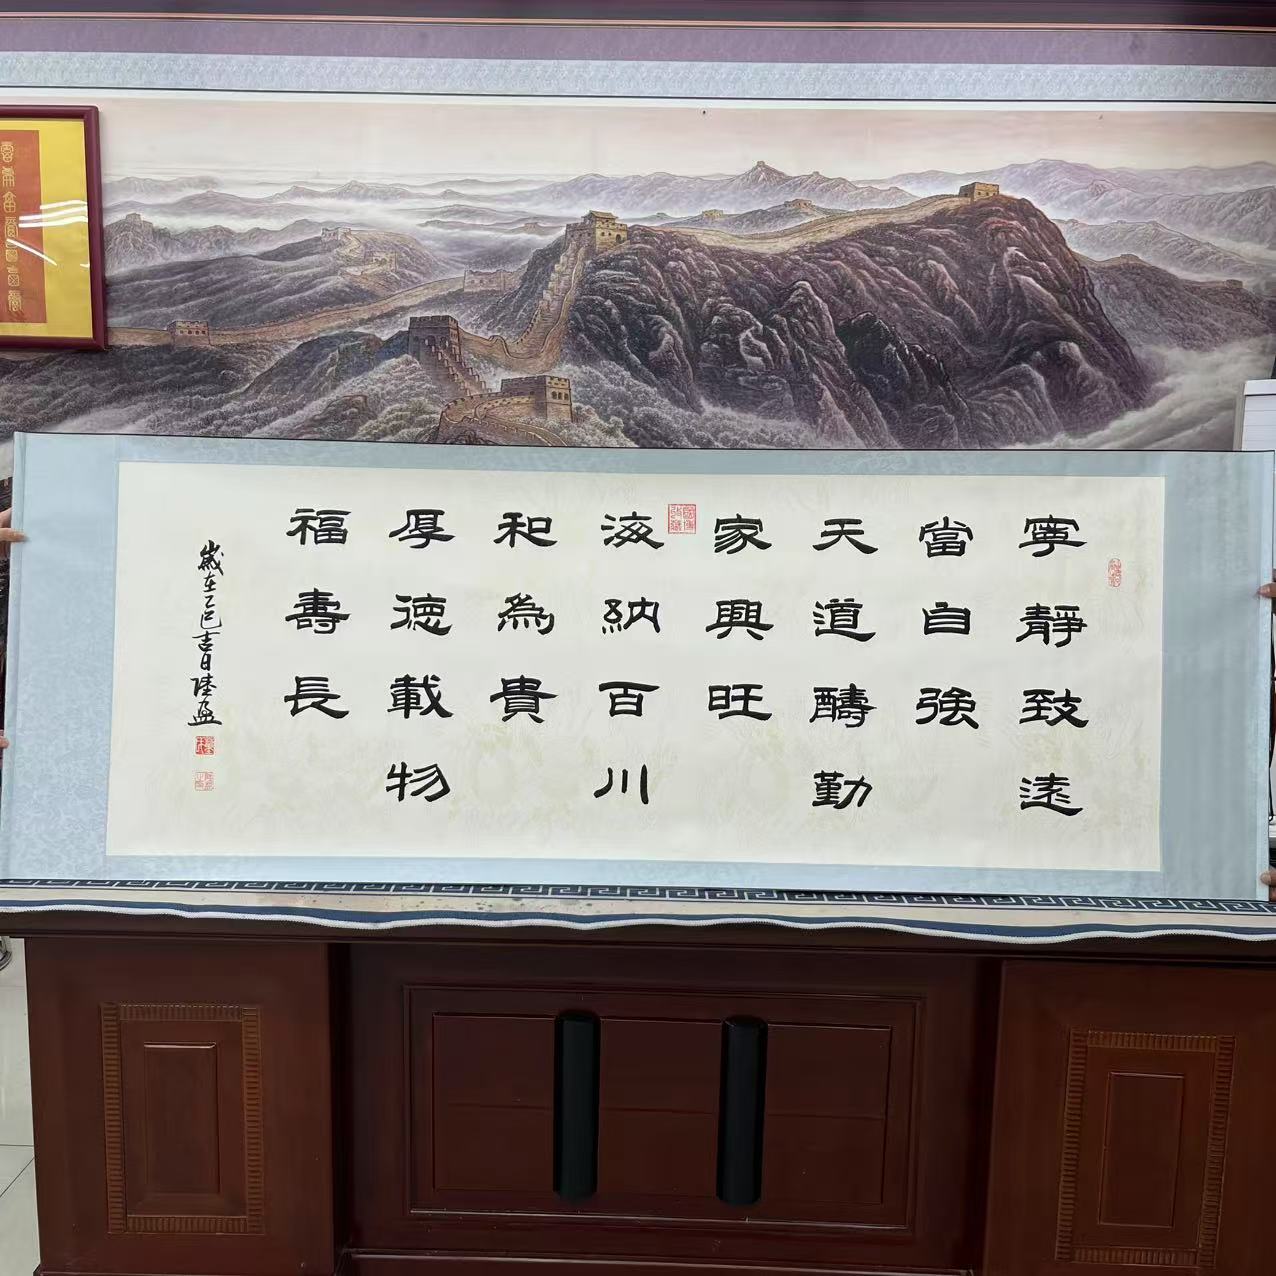 寧靜致遠
當自強
天道酬勤
家興旺
海納百川
和為貴
厚德載物
福壽長
歲在乙巳吉日陸亟